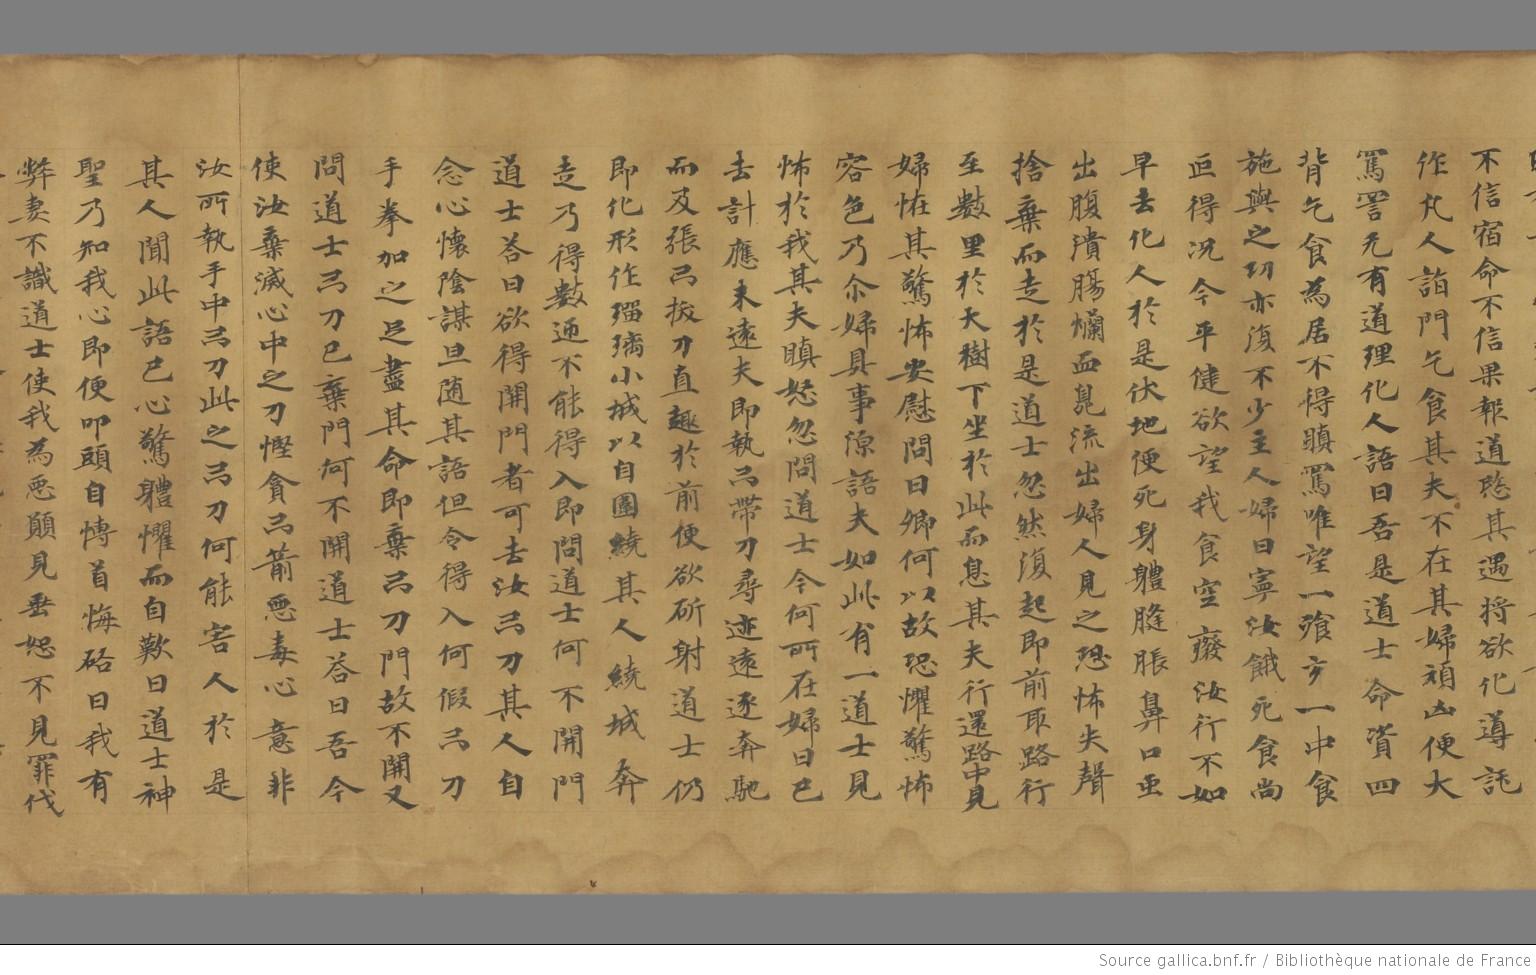 不信宿命不信果報道愍其遇將欲化導託
作凡人詣門乞食其夫不在其婦頑凶便大
罵詈无有道理化人語曰吾是道士命資四
背乞食為居不得瞋罵唯望一飡亐一中食
施與之切亦復不少主人婦曰寧汝餓死食尚
叵得況今平健欲望我食空癈汝行不如
早去化人於是伏地便死身軆膖脹鼻口虫
出腹潰腸爛面鳬流出婦人見之恐怖失聲
捨棄而走於是道士忽然復起即前取路行
至數里於大樹下坐於此而息其夫行還路中見
婦恠其驚怖安慰問曰卿何以故恐懼驚怖
容色乃尒婦具事源語夫如此有一道士見
怖於我其夫瞋怒忽問道士今何所在婦曰已
去計應未遠夫即執弓帶刀尋迹遠逐奔馳
而及張弓拔刀直趣於前便欲斫射道士仍
即化形作瑠璃小城以自圍繞其人繞城奔
走乃得數迊不能得入即問道士何不開門
道士荅曰欲得開門者可去汝弓刀其人自
念心懷陰謀旦随其語但令得入何假弓刀
手拳加之足盡其命即棄弓刀門故不開又
問道士弓刀已棄門何不開道士荅曰吾今
使汝棄滅心中之刀慳貪弓箭惡毒心意非
汝所執手中弓刀此之弓刀何能害人於是
其人聞此語已心驚軆懼而自歎曰道士神
聖乃知我心即便叩頭自慱首悔硌曰我有
弊妻不識道士使我為惡願見垂恕不見罪伐